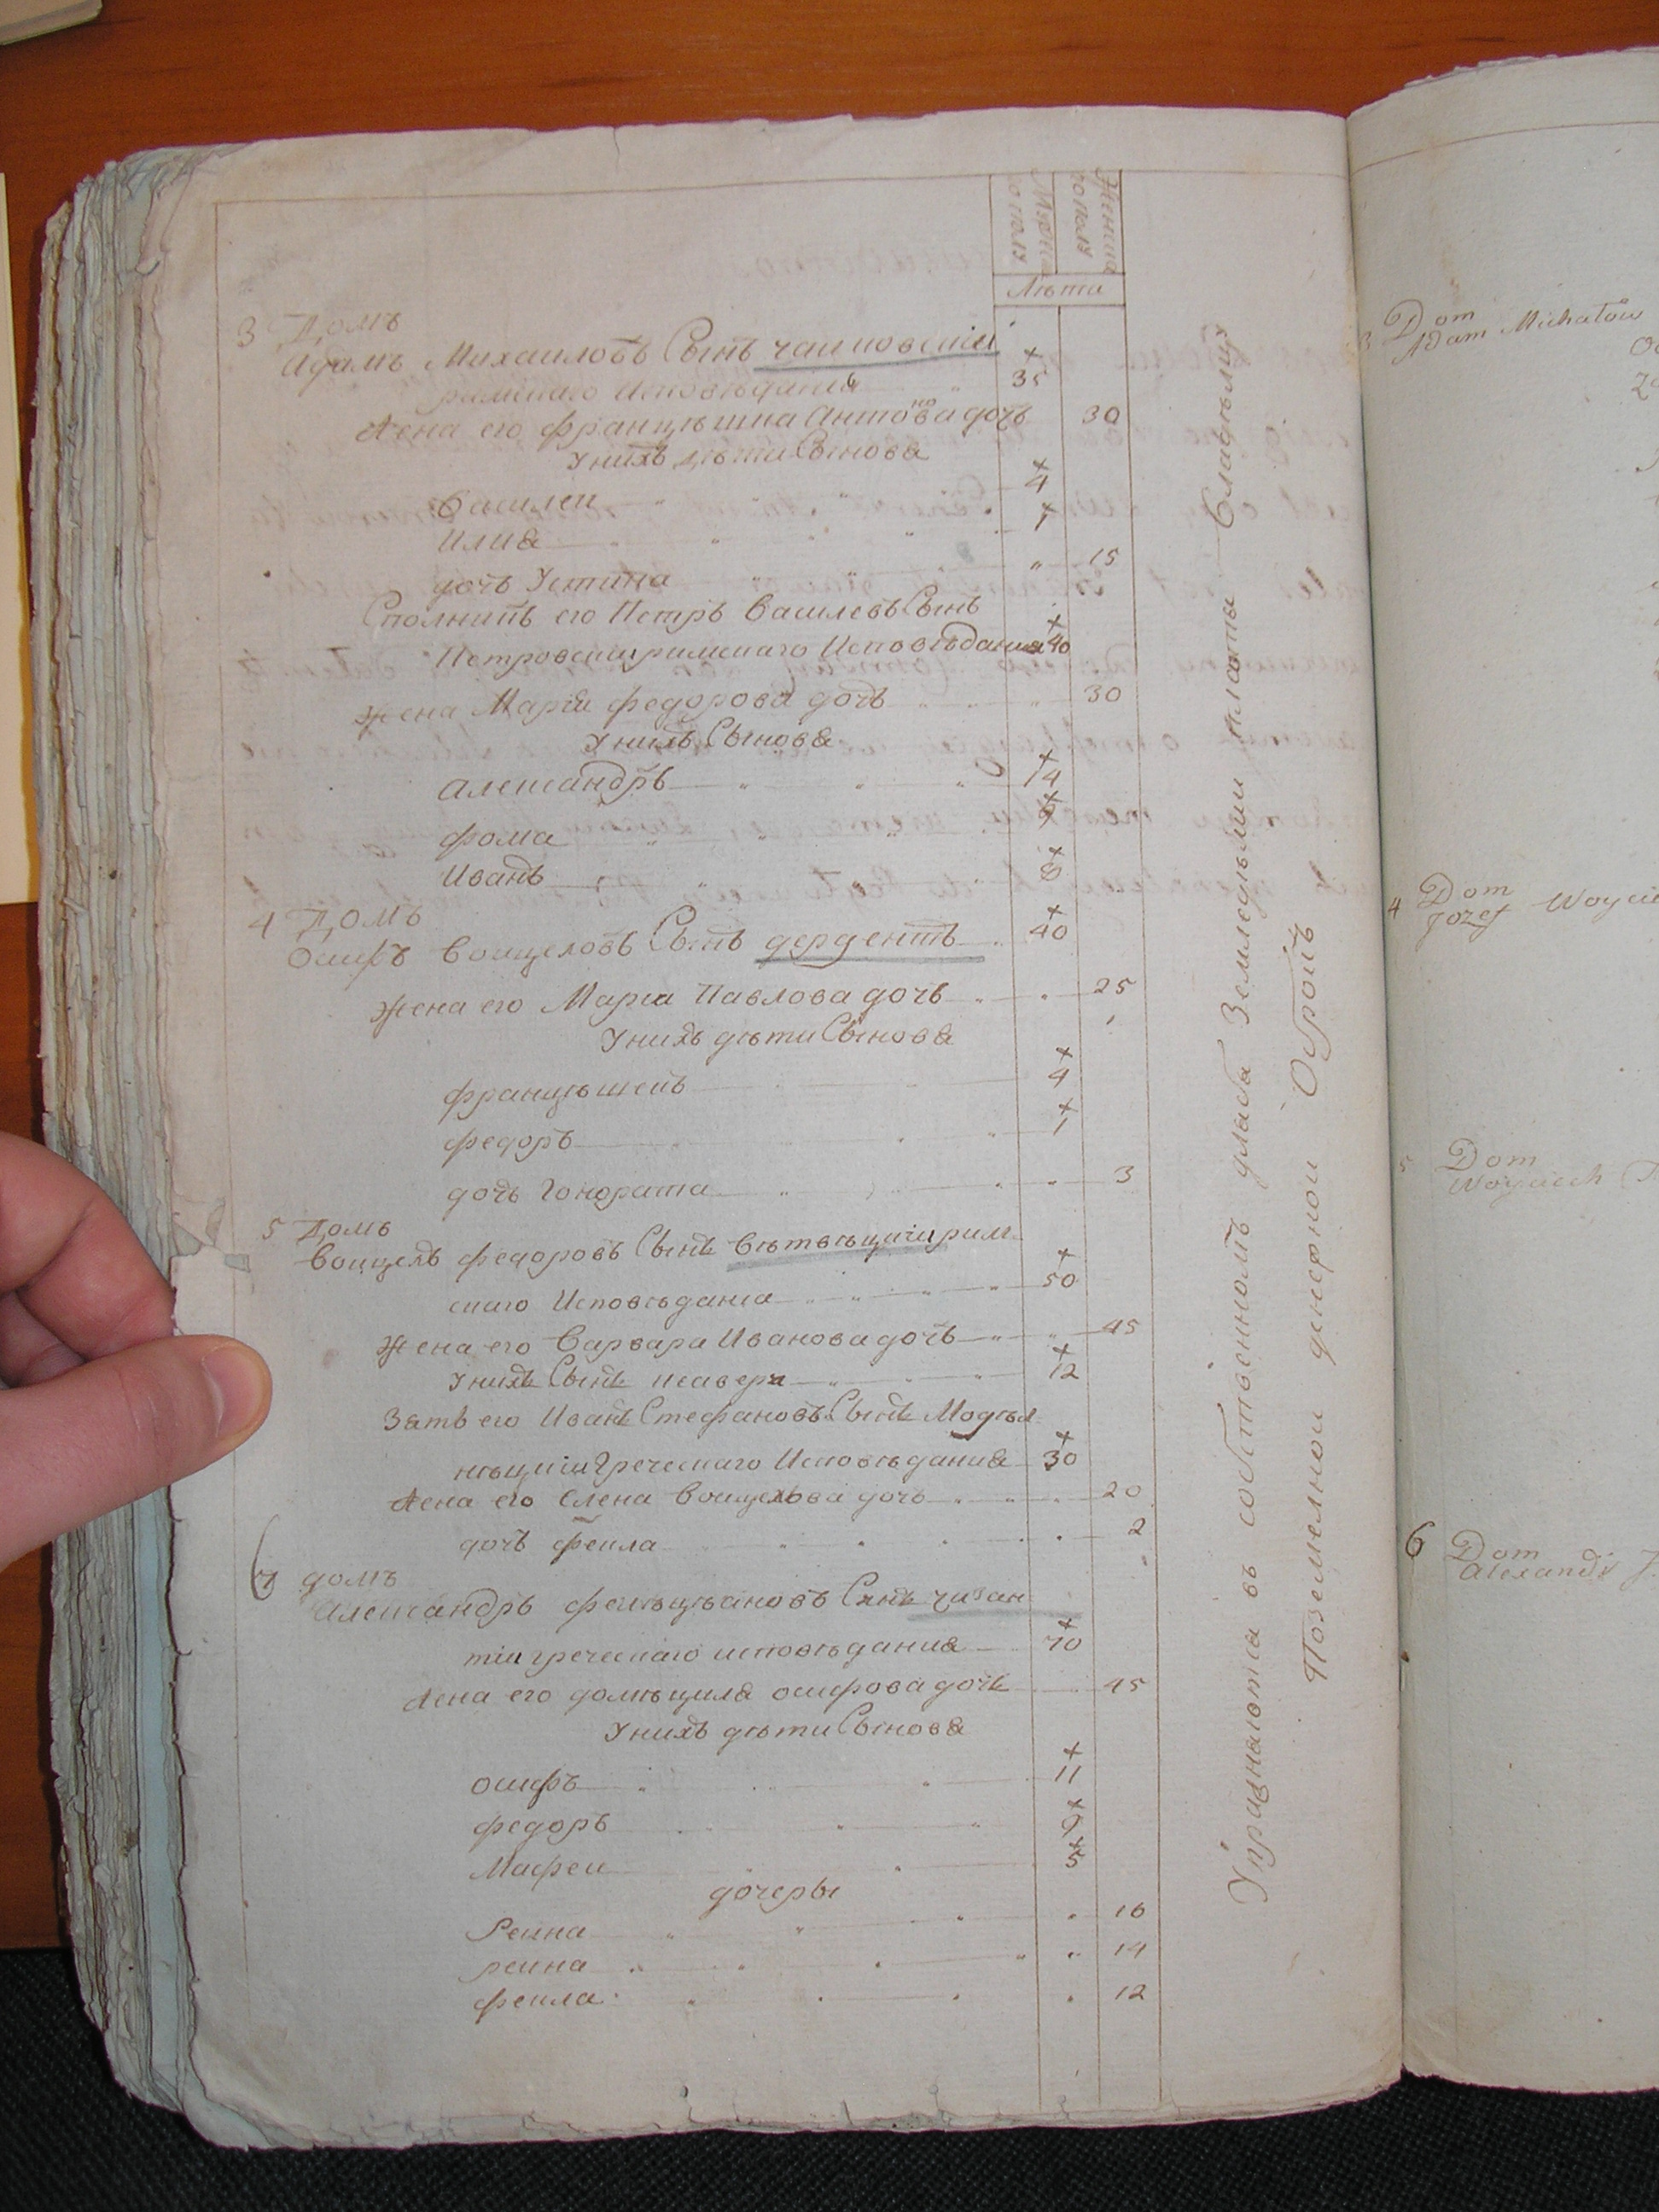 Женска
го полу
Мужска
го полу
Лѣта
3 Домъ
Адамъ Михаиловъ Сынъ чаиковскіи
римскаго Исповѣданія 35
Жена его францѣшка Антонова дочь 30
У нихъ дѣти Сыновя
Василеи 4
Илия 1
дочь Устина 15
Сполникъ его Петръ Василевъ Сынъ
Петровскіи римскаго Исповѣдания 40
жена Марія федорова дочь 30
У нихъ Сыновя
Александръ 14
фома
Иванъ 8
4 Домъ
Осифъ Воицеховъ Сынъ 40
жена его Марія Павлова дочь 25
У нихъ дѣти Сыновя
францѣшекъ 4
федоръ 1
дочь Гонората 3
5 Домъ
Воицехъ федоровъ Сынъ вѣтвѣцкіи рим
скаго Исповѣданія 50
жена его Варвара Иванова дочь 45
У нихъ Сынъ 12
Зять его Иванъ Стефановъ Сынъ Модзѣл
нѣцкіи Греческаго Исповѣдания 30
Жена его Елена Воицехова дочь 20
дочь фекла 2
6 домъ
Александръ Сынъ
греческаго исповѣдания 70
Жена его домѣцеля осифова дочь 45
У нихъ дѣти Сыновя
осифъ 11
федоръ 9
Мафеи 5
дочеры
16
14
фекла 12
Упражняются въ собственномъ Земледѣлии платы Владѣльцу
Поземелнои денежнои Оброкъ
3 Dom
Adam Michałów
4 Dom
Jozef
5 Dom
Woyciech
6 Dom
Alexandr